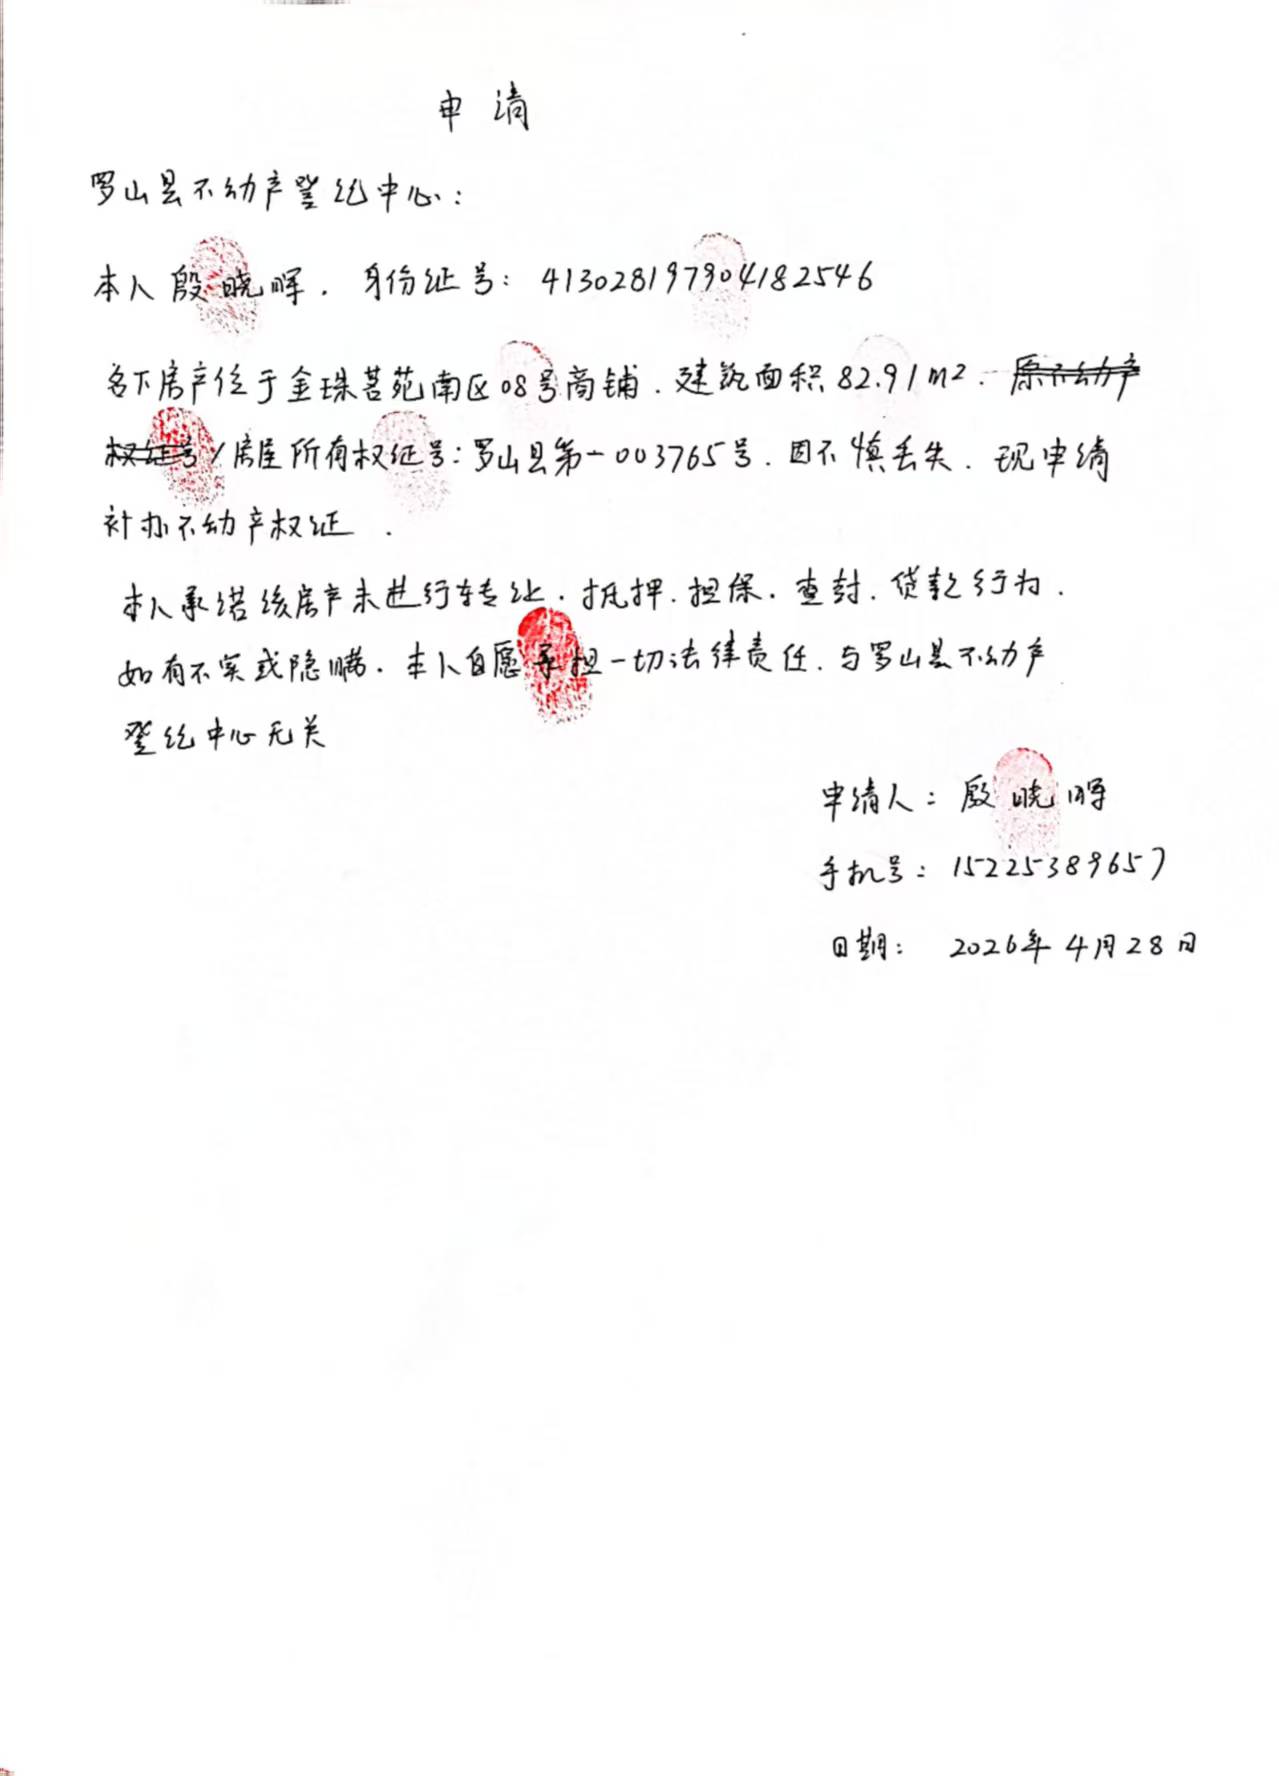 申请
罗山县不动产登记中心：
本人殷晓晖．身份证号：413028197904182546
名下房产位于金珠茗苑南区08号商铺．建筑面积82.91m²．原不动产
权证号/房屋所有权证号：罗山县第一003765号．因不慎丢失．现申请
补办不动产权证．
本人承诺该房产未进行转让．抵押．担保．查封．贷款行为．
如有不实或隐瞒．本人自愿承担一切法律责任．与罗山县不动产
登记中心无关
申请人：殷晓晖
手机号：15225389657
日期：2026年4月28日